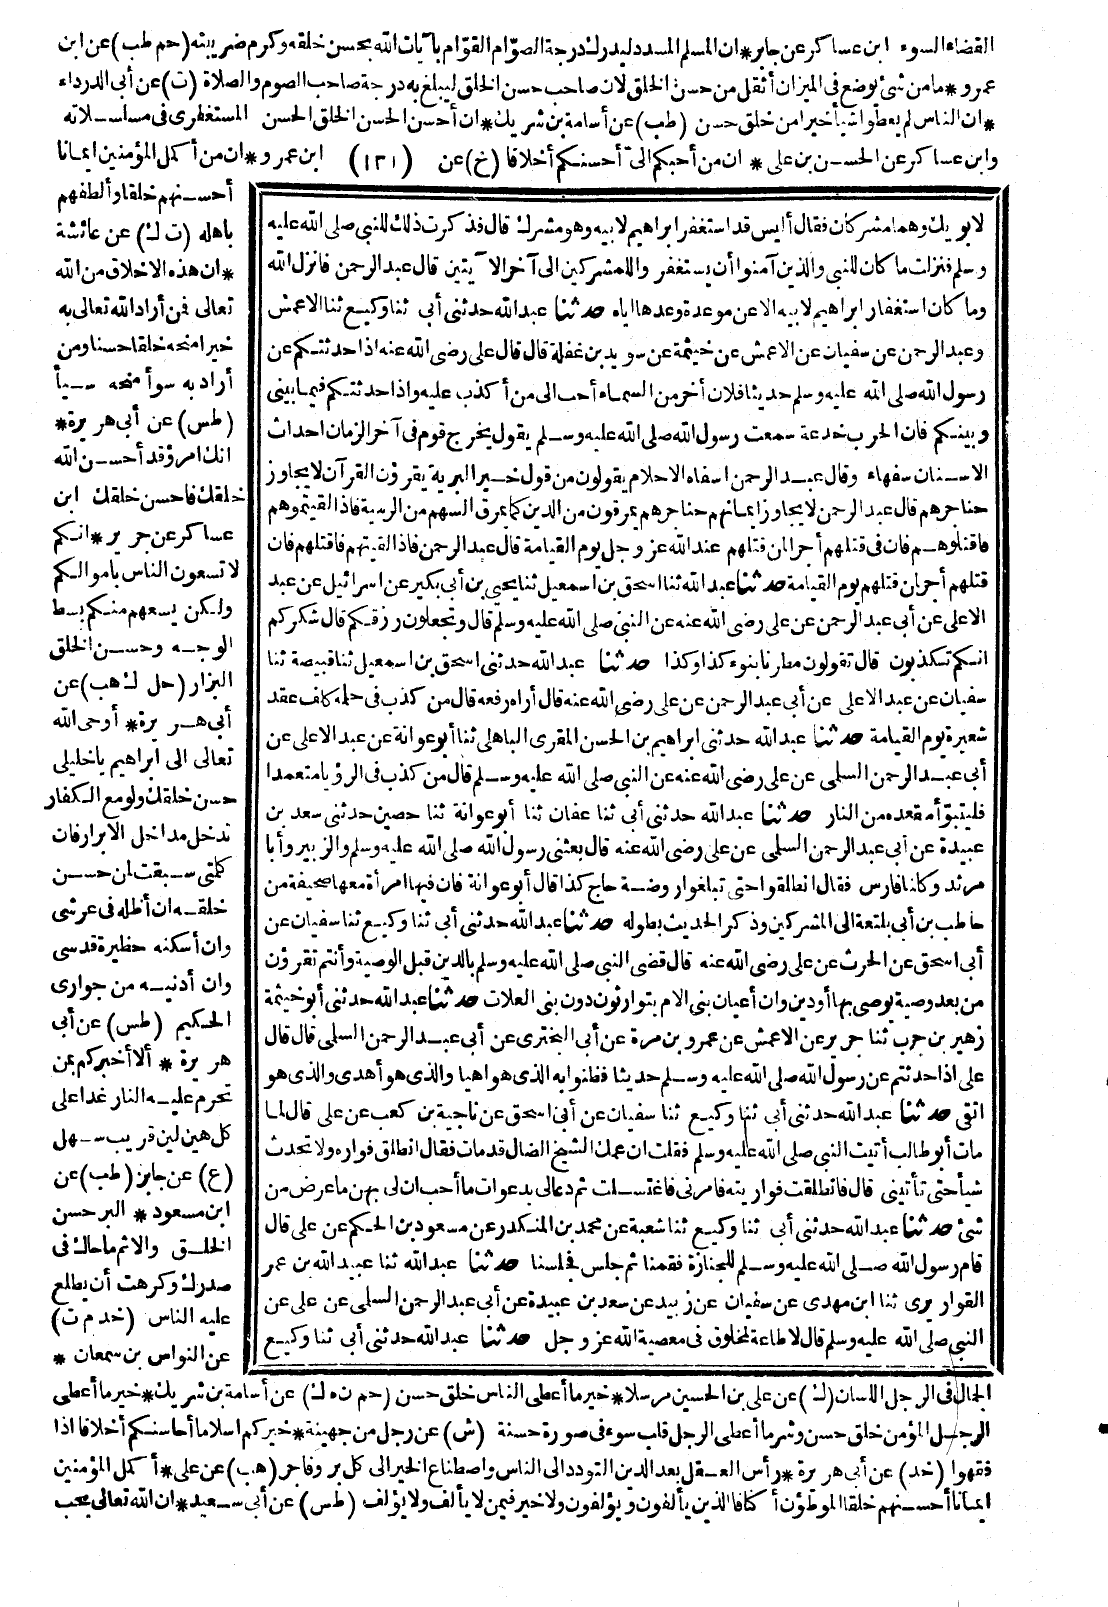 القضاء السوء ابن عساكر عن جابر * ان المسلم المسدد ليدرك درجة الصوّام القوّام بآيات الله بحسن خلقه وكرم ضريبته (حم طب) عن ابن
عمرو * مامن شئ يوضع فى الميزان أثقل من حسن الخلق لان صاحب حسن الخلق ليبلغ به درجة صاحب الصوم والصلاة (ت) عن أبى الدرداء
* ان الناس لم يعطوا شيأ خيرا من خلق حسن (طب) عن أسامة بن شريك * ان أحسن الحسن الخلق الحسن المستغفرى فى مسلسلاته
وابن عساكر عن الحسن بن على * ان من أحبكم الىّ أحسنكم أخلاقا (خ) عن (١٣١) ابن عمرو * ان من أكمل المؤمنين ايمانا
أحسنهم خلقا وألطفهم
باهله (ت ك) عن عائشة
* ان هذه الاخلاق من الله
تعالى فمن أراد الله تعالى به
خيرا منحه خلقا حسنا ومن
أراد به سوأ منحه سيأ
(طس) عن أبى هريرة *
انك امرؤ قد أحسن الله
خلقك فاحسن خلقك ابن
عساكر عن جرير * انكم
لا تسعون الناس باموالكم
ولكن يسعهم منكم بسط
الوجه وحسن الخلق
البزار (حل ك هب) عن
أبى هريرة * أوحى الله
تعالى الى ابراهيم ياخليلى
حسن خلقك ولو مع الكفار
تدخل مداخل الابرار فان
كلمتى سبقت لمن حسن
خلقه ان أظله فى عرشى
وان أسكنه حظيرة قدسى
وان أدنيه من جوارى
الحكيم (طس) عن أبى
هريرة * ألا أخبركم بمن
تحرم عليه النار غدا على
كل هين لين قريب سهل
(ع) عن جابر (طب) عن
ابن مسعود * البر حسن
الخلق والاثم ماحاك فى
صدرك وكرهت أن يطلع
عليه الناس (خد م ت)
عن النواس بن سمعان *
لابويك وهما مشركان فقال أليس قد استغفر ابراهيم لابيه وهو مشرك قال فذكرت ذلك للنبى صلى الله عليه
وسلم فنزلت ما كان للنبى والذين آمنوا أن يستغفروا للمشركين الى آخر الآيتين قال عبد الرحمن فانزل الله
وما كان استغفار ابراهيم لابيه الا عن موعدة وعدها اياه حدثنا عبد الله حدثنى أبى ثنا وكيع ثنا الاعمش
وعبد الرحمن عن سفيان عن الاعمش عن خيثمة عن سويد بن غفلة قال قال على رضى الله عنه اذا حدثتكم عن
رسول الله صلى الله عليه وسلم حديثا فلان أخر من السماء أحب الى من أكذب عليه واذا حدثتكم فيما بينى
وبينكم فان الحرب خدعة سمعت رسول الله صلى الله عليه وسلم يقول يخرج قوم فى آخر الزمان احداث
الاسنان سفهاء وقال عبد الرحمن اسفاه الاحلام يقولون من قول خير البرية يقرؤن القرآن لا يجاوز
حناجرهم قال عبد الرحمن لا يجاوز ايمانهم حناجرهم يمرقون من الدين كما يمرق السهم من الرمية فاذا لقيتموهم
فاقتلوهم فان فى قتلهم أجرا لمن قتلهم عند الله عز وجل يوم القيامة قال عبد الرحمن فاذا لقيتهم فاقتلهم فان
قتلهم أجر لمن قتلهم يوم القيامة حدثنا عبد الله ثنا اسحق بن اسمعيل ثنا يحيى بن أبى بكير عن اسرائيل عن عبد
الاعلى عن أبى عبد الرحمن عن على رضى الله عنه عن النبى صلى الله عليه وسلم قال وتجعلون رزقكم قال شكركم
انكم تكذبون قال تقولون مطرنا بنوء كذا وكذا حدثنا عبد الله حدثنى اسحق بن اسمعيل ثنا قبيصة ثنا
سفيان عن عبد الاعلى عن أبى عبد الرحمن عن على رضى الله عنه قال أراه رفعه قال من كذب فى حلمه كلف عقد
شعيرة يوم القيامة حدثنا عبد الله حدثنى ابراهيم بن الحسن المقرى الباهلى ثنا أبو عوانة عن عبد الاعلى عن
أبى عبد الرحمن السلمى عن على رضى الله عنه عن النبى صلى الله عليه وسلم قال من كذب فى الرؤيا متعمدا
فليتبوّأ مقعده من النار حدثنا عبد الله حدثنى أبى ثنا عفان ثنا أبو عوانة ثنا حصين حدثنى سعد بن
عبيدة عن أبى عبد الرحمن السلمى عن على رضى الله عنه قال بعثنى رسول الله صلى الله عليه وسلم والزبير وأبا
مرثد وكلنا فارس فقال انطلقوا حتى تبلغوا روضة حاج كذا قال أبو عوانة فان فيها امرأة معها صحيفة من
حاطب بن أبى بلتعة الى المشركين وذكر الحديث بطوله حدثنا عبد الله حدثنى أبى ثنا وكيع ثنا سفيان عن
أبى اسحق عن الحرث عن على رضى الله عنه قال قضى النبى صلى الله عليه وسلم بالدين قبل الوصية وأنتم تقرؤن
من بعد وصية يوصى بها أو دين وان أعيان بنى الام يتوارثون دون بنى العلات حدثنا عبد الله حدثنى أبو خيثمة
زهير بن حرب ثنا جرير عن الاعمش عن عمرو بن مرة عن أبى البخترى عن أبى عبد الرحمن السلمى قال قال
على اذا حدثتم عن رسول الله صلى الله عليه وسلم حديثا فظنوا به الذى هو اهيا والذى هو أهدى والذى هو
اتقى حدثنا عبد الله حدثنى أبى ثنا وكيع ثنا سفيان عن أبى اسحق عن ناجية بن كعب عن على قال لما
مات أبو طالب أتيت النبى صلى الله عليه وسلم فقلت ان عمك الشيخ الضال قد مات فقال انطلق فواره ولا تحدث
شيأ حتى تأتينى قال فانطلقت فواريته فامرنى فاغتسلت ثم دعا لى بدعوات ما أحب ان لى بهن ما عرض من
شئ حدثنا عبد الله حدثنى أبى ثنا وكيع ثنا شعبة عن محمد بن المنكدر عن مسعود بن الحكم عن على قال
قام رسول الله صلى الله عليه وسلم للجنازة فقمنا ثم جلس فجلسنا حدثنا عبد الله ثنا عبيد الله بن عمر
القواريرى ثنا ابن مهدى عن سفيان عن زبيد عن سعد بن عبيدة عن أبى عبد الرحمن السلمى عن على عن
النبى صلى الله عليه وسلم قال لا طاعة لمخلوق فى معصية الله عز وجل حدثنا عبد الله حدثنى أبى ثنا وكيع
الجمال فى الرجل اللسان (ك) عن على بن الحسين مرسلا * خير ما أعطى الناس خلق حسن (حم ن ه ك) عن أسامة بن شريك * خير ما أعطى
الرجل المؤمن خلق حسن وشر ما أعطى الرجل قلب سوء فى صورة حسنة (ش) عن رجل من جهينة * خيركم اسلاما أحاسنكم أخلاقا اذا
فقهوا (خد) عن أبى هريرة * رأس العقل بعد الدين التودد الى الناس واصطناع الخير الى كل بر وفاجر (هب) عن على * أكمل المؤمنين
ايمانا أحسنهم خلقا الموطؤن أكنافا الذين يألفون ويؤلفون ولا خير فيمن لا يألف ولا يؤلف (طس) عن أبى سعيد * ان الله تعالى يحب